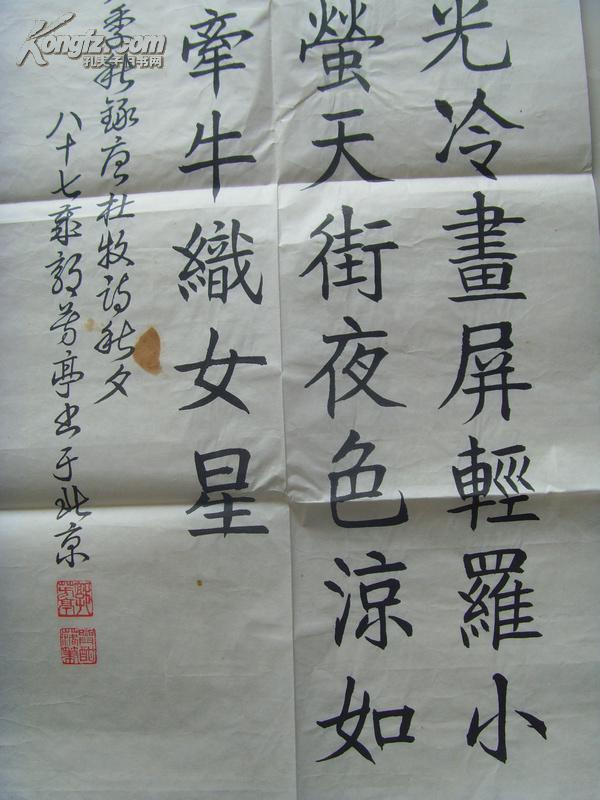 光冷畫屏輕羅小
螢天街夜色涼如
牽牛織女星
季秋錄唐杜牧詩秋夕
八十七叟郭芳亭書于北京
Kongfz.com
孔夫子旧书网